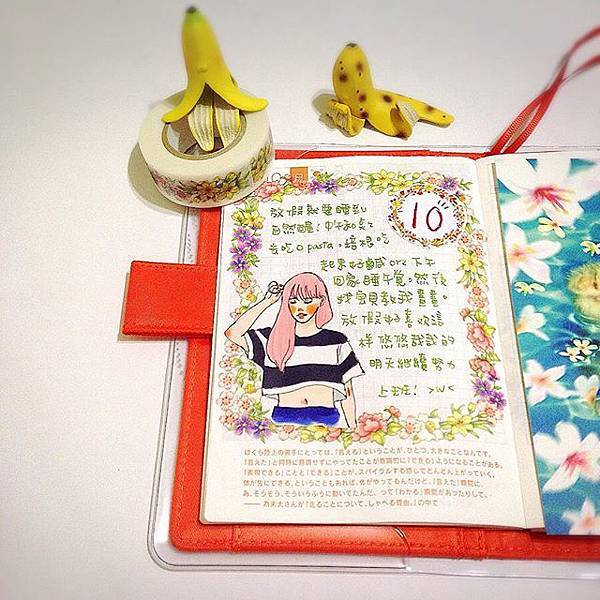 10
放假就要睡到
自然醒!中午和
去吃 pasta,這根吃
起來好鹹 orz 下午
回家睡午覺。然後
找寶貝教我畫畫。
放假好喜歡這
樣悠悠哉哉的
明天繼續努力
上班! >w<
ぼくら陸上の選手にとっては、「言える」ということが、ひとつ、大きなことなんです。
「言えた」と同時に意識せずにやってたことが意識的に「できる」ようになることがある。
「表現できる」ことと「できる」ことが、スパイラルする感じでどんどん上がっていく。
体が先にできる、ということもあれば、体がやってるんだけど、「言えた」瞬間に
あ、そうそう、そういうふうに動いてたんだ、って「わかる」瞬間があったりして。
—— 為末大さんが『走ることについて、しゃべる理由。』の中で